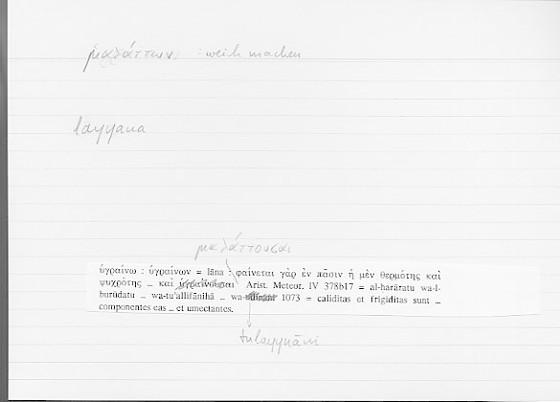 μαλάττων : weich machen
layyana
μαλάττουσαι
ὑγραίνω : ὑγραίνων = lāna : φαίνεται γὰρ ἐν πᾶσιν ἡ μὲν θερμότης καὶ
ψυχρότης .. καὶ ὑγραίνουσαι Arist. Meteor. IV 378b17 = al-ḥarāratu wa-l-
burūdatu .. wa-tu'allifānihā .. wa- 1073 = caliditas et frigiditas sunt ..
componentes eas .. et umectantes.
tulayyināni